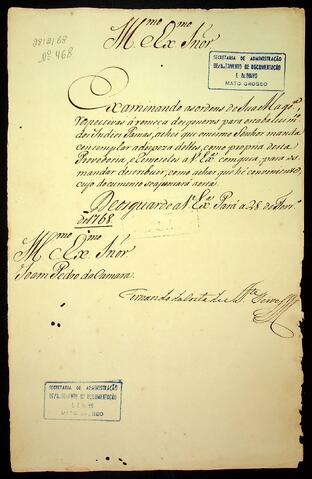 28/2/68
Nº 468
Illmo e Exmo Snõr
SECRETARIA DE ADMINISTRAÇÃO
DEPARTAMENTO DE DOCUMENTAÇÃO
E ARQUIVO
MATO GROSSO
Examinando as ordens de Sua Magde
respectivas á remeça de generos para estabelecim
dos Indios Panas, achei que o mesmo Senhor manda
contemplar a despeza delles, como propria desta
Provedoria, e com elles a V. Exa com guia, para os
mandar destribuir, como achar que hé conveniente,
cujo documento
Deos guarde a V. Exa Pará a 28 de Fevr.
de 1768.
Illmo e Exmo Snõr
Joam Pedro da Camara
Fernando da Costa de
SECRETARIA DE ADMINISTRAÇÃO
DEPARTAMENTO DE DOCUMENTAÇÃO
E ARQUIVO
MATO GROSSO